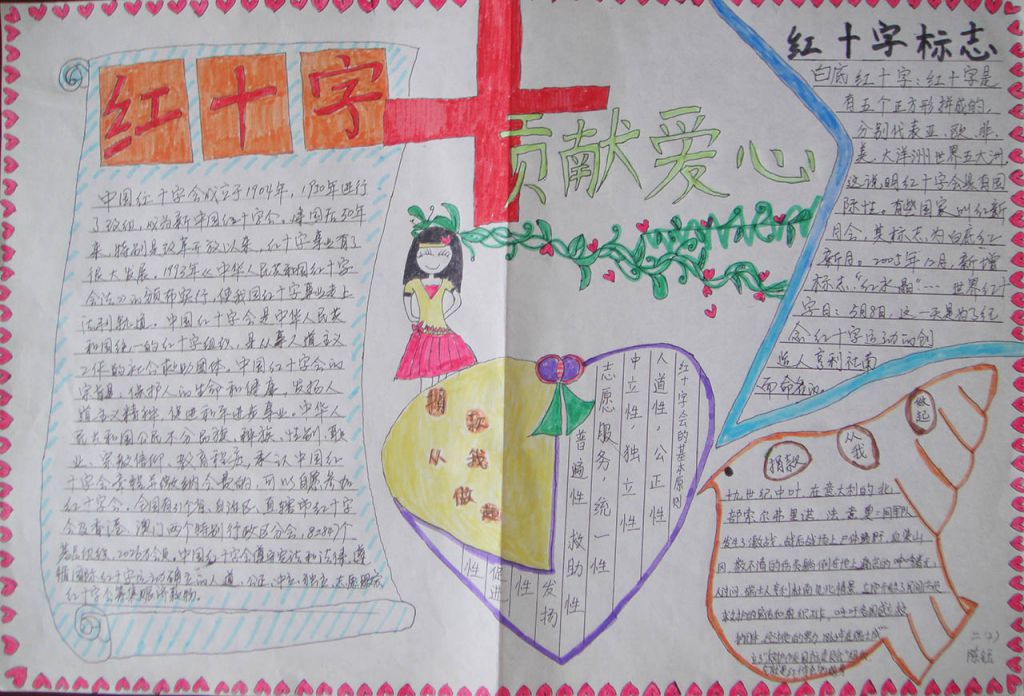 红十字
中国红十字会成立于1904年，1950年进行
了改组，成为新中国红十字会，建国后50年
来，特别是改革开放以来，红十字事业有了
很大发展，1993年《中华人民共和国红十字
会法》的颁布实行，使我国红十字事业走上
法制轨道。中国红十字会是中华人民共
和国统一的红十字组织，是从事人道主义
工作的社会救助团体。中国红十字会的
宗旨是，保护人的生命和健康，发扬人
道主义精神，促进和平进步事业。中华人
民共和国公民不分民族、种族、性别、职
业、宗教信仰、教育程度，承认中国红
十字会章程并缴纳会费的，可以自愿参加
红十字会。全国有31个省、自治区、直辖市红十字
会及香港、澳门两个特别行政区分会，
中国红十字会遵守宪法和法律，遵
人道、公正、中立、独立、志愿服务
贡献爱心
捐款
从我
做起
红十字会的基本原则
人道性，公正性
中立性，独立性
志愿服务，统一性
普遍性 救助性
发扬性
促进性
红十字标志
白底红十字：红十字是
有五个正方形拼成的，
分别代表亚、欧、非、
美、大洋洲世界五大洲，
这说明红十字会具有国
际性。有些国家叫红新
月会，其标志为白底红
新月。2005年12月，新增
标志，“红水晶”… 世界红十
字日：5月8日，这一天是为了纪
念红十字运动的创
始人亨利杜南
而命名的。
捐款
从我
做起
世纪中叶，在意大利的北
部索尔弗里诺，法意奥三国军队
发生了激战，战后战场上尸体遍野，血染山
冈，数不清的伤员躺倒在地上
二（2）
陈